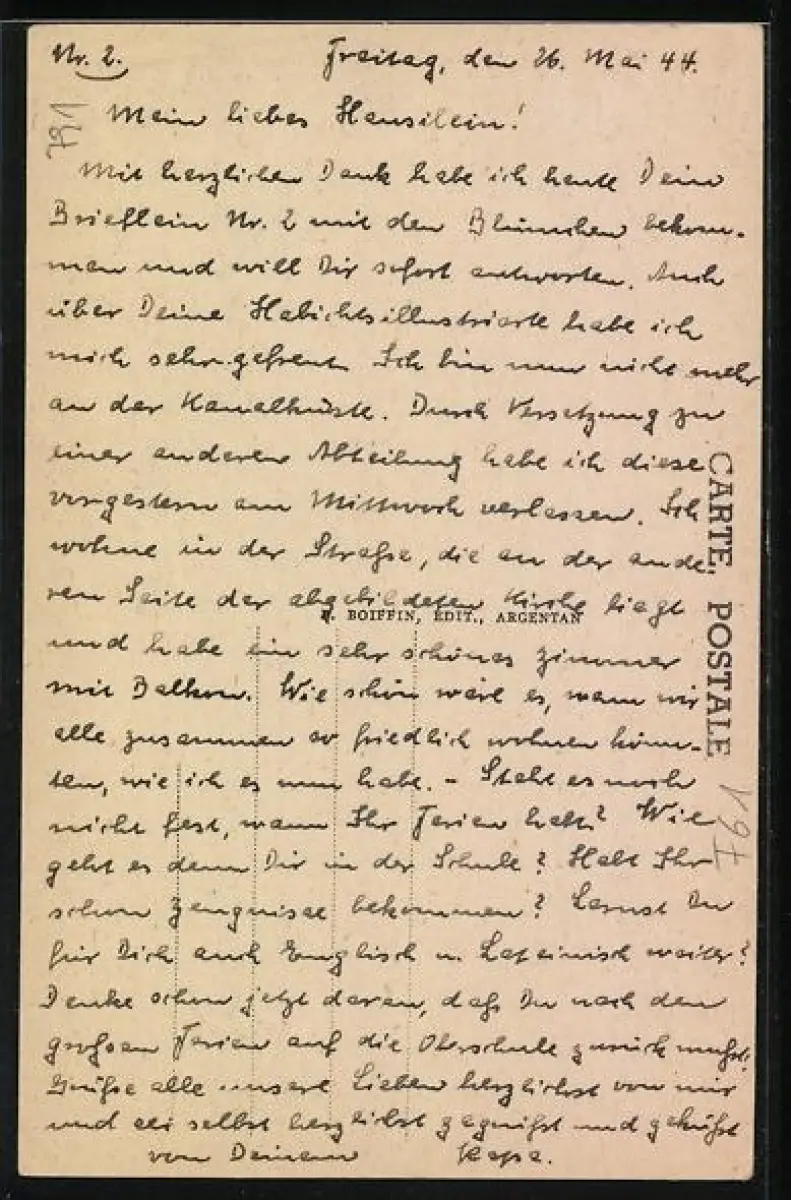 Nr. 2. Freitag, den 26. Mai 44.
Mein liebes Hänsilein!
Mit herzlichem Dank habe ich heute Dein
Brieflein Nr. 2 mit den Blümchen bekom-
men und will Dir sofort antworten. Auch
über Deine Habichtsillustrierte habe ich
mich sehr gefreut. Ich bin nun nicht mehr
an der Kanalküste. Durch Versetzung zu
einer anderen Abteilung habe ich diese
vorgestern am Mittwoch verlassen. Ich
wohne in der Straße, die an der ande-
ren Seite der abgebildeten Kirche liegt
P. BOIFFIN, ÉDIT., ARGENTAN
und habe ein sehr schönes Zimmer
mit Balkon. Wie schön wäre es, wenn wir
alle zusammen so friedlich wohnen könn-
ten, wie ich es nun habe. - Steht es noch
nicht fest, wann Ihr Ferien habt? Wie
geht es denn Dir in der Schule? Habt Ihr
schon Zeugnisse bekommen? Lernst Du
für Dich auch Englisch u. Lateinisch weiter?
Denke schon jetzt daran, daß Du nach den
großen Ferien auf die Oberschule zurück mußt.
Grüße alle unsere Lieben herzlichst von mir
und sei selbst herzlichst gegrüßt und geküßt
von Deinem Papa.
CARTE POSTALE